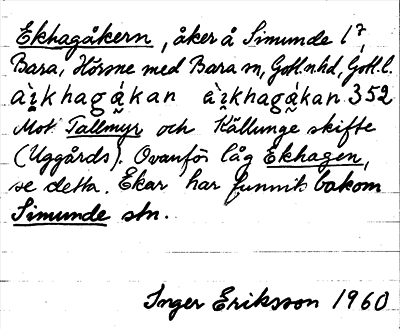 Ekhagåkern, åker å Simunde 1²,
Bara, Hörsne med Bara sn, Gotl.n.hd, Gotl.l.
àı̨khagákan àı̨khagákan 352
Mot Tallmyr och Källunge skifte
(Uggårds). Ovanför låg Ekhagen,
se detta. Ekar har funnits bakom
Simunde stn.
Inger Eriksson 1960